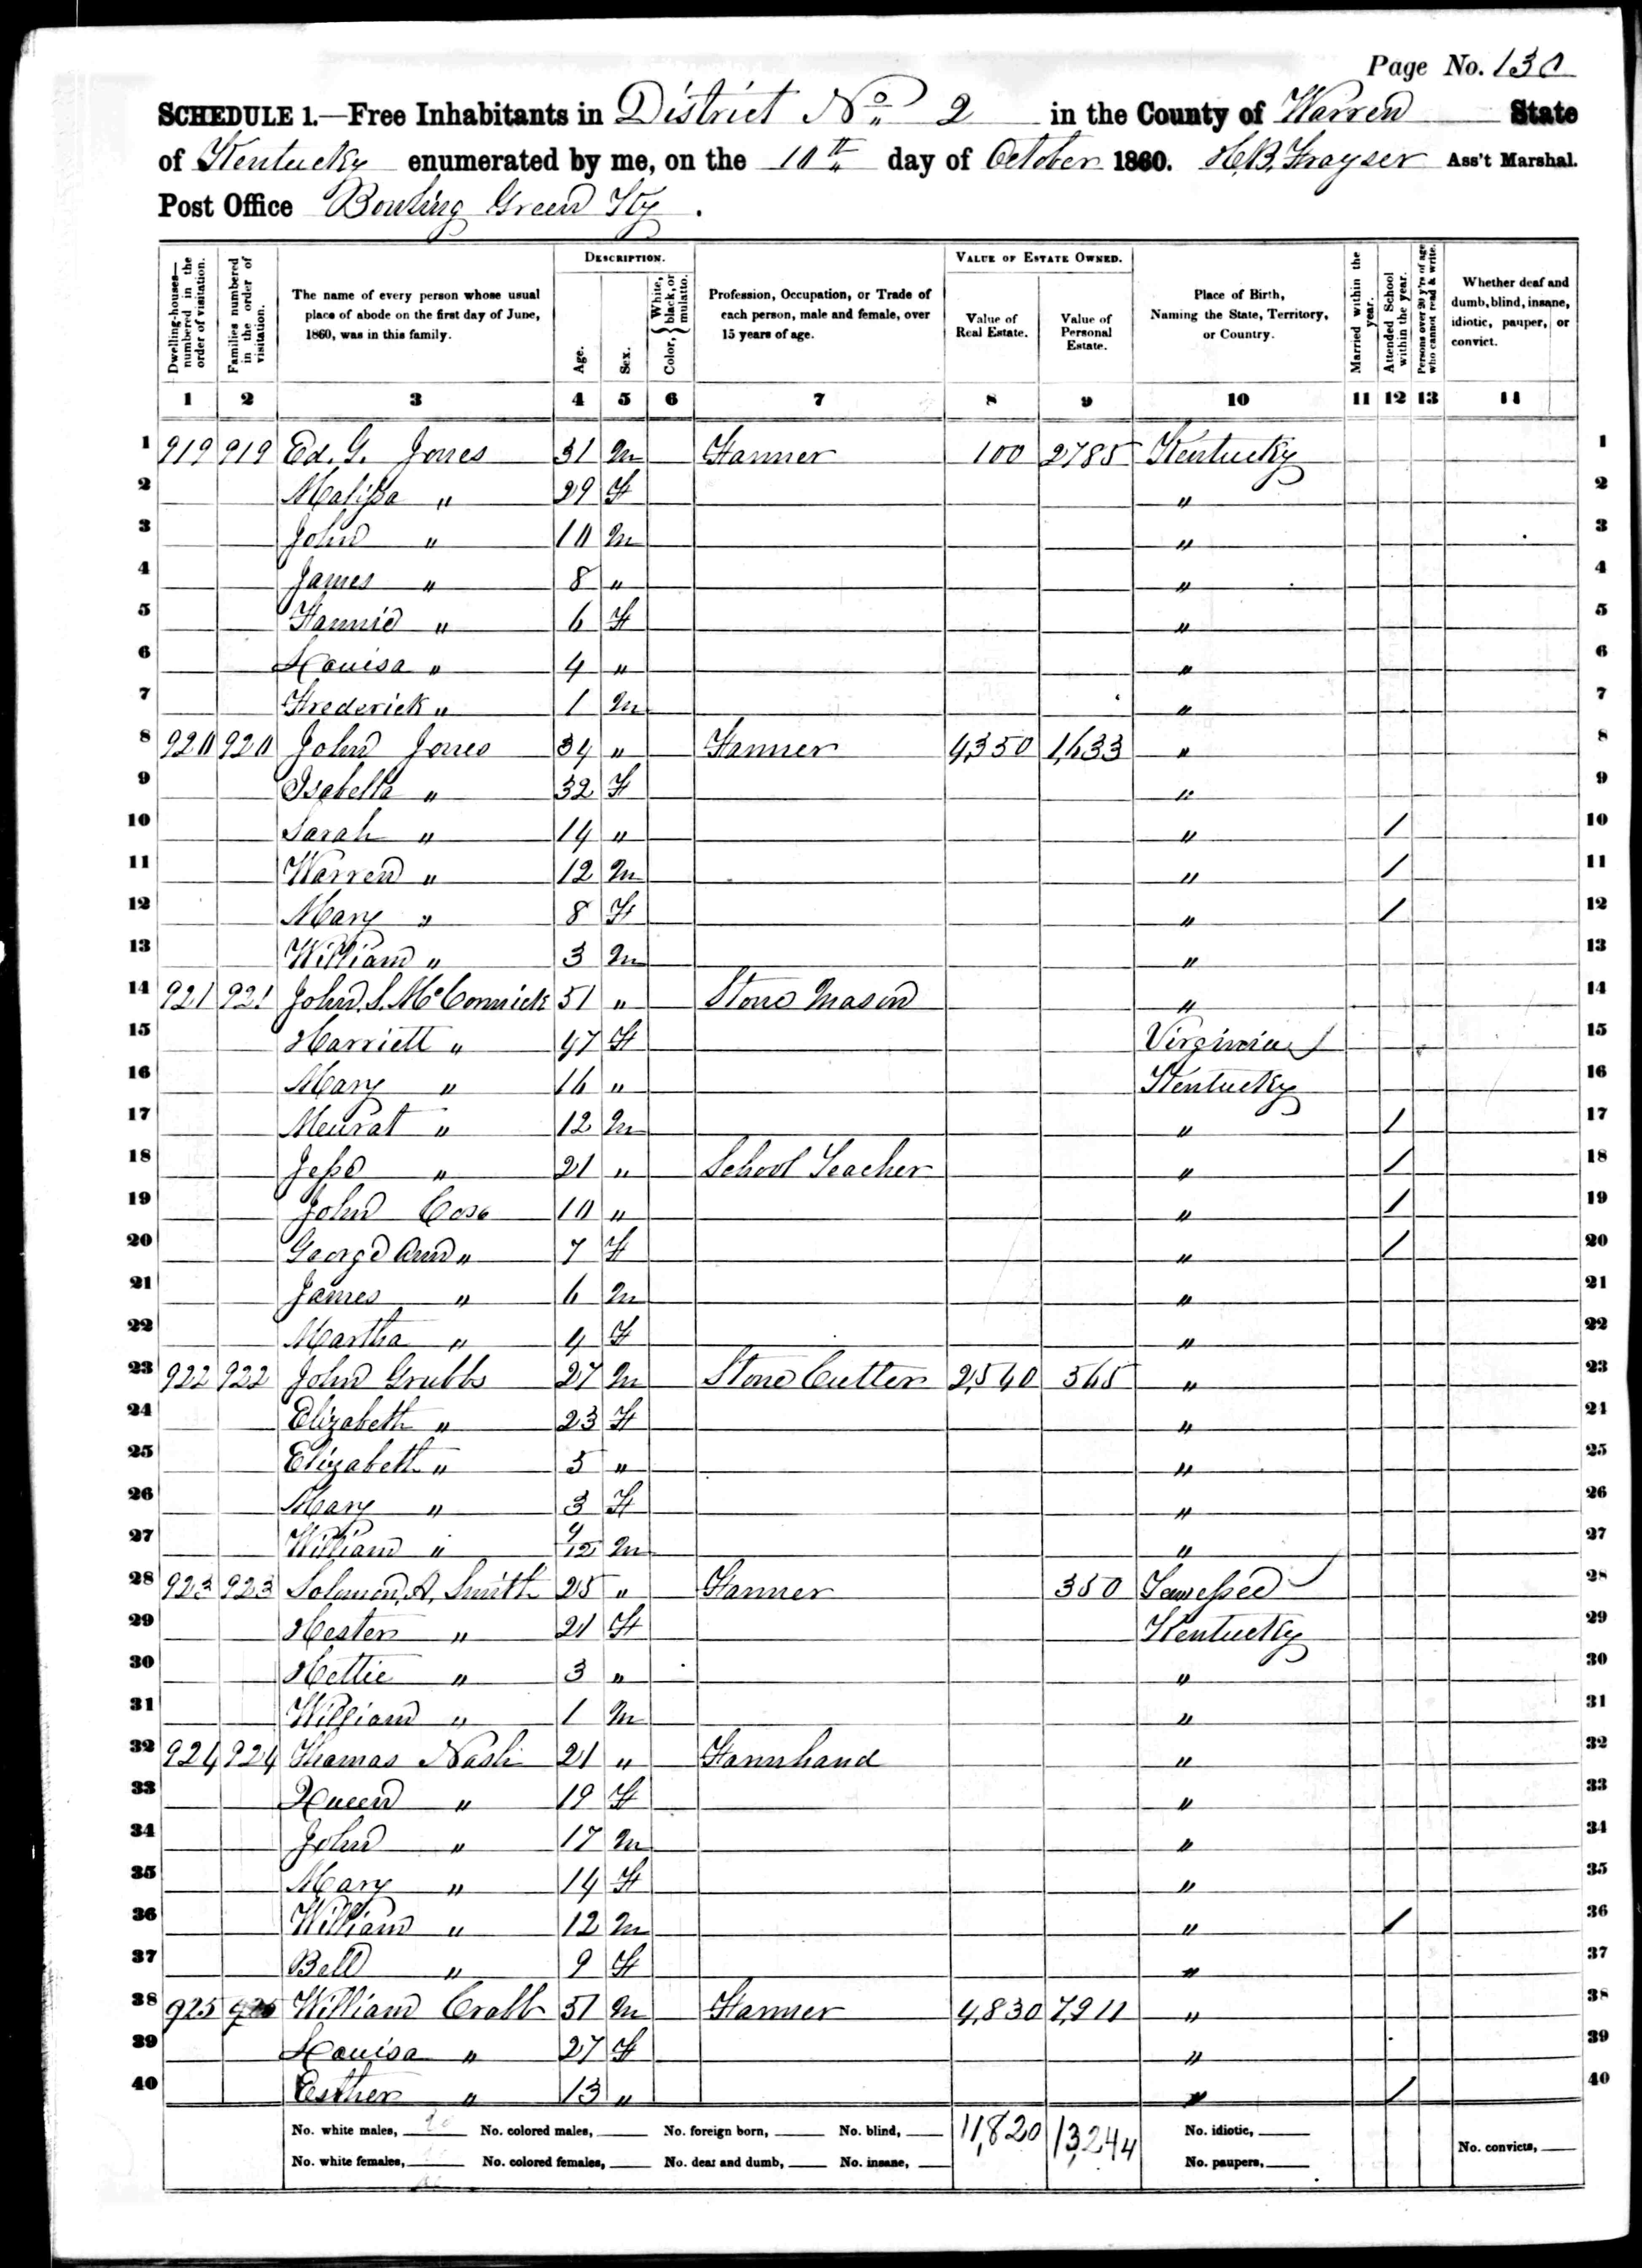 Page No. 130
SCHEDULE 1.—Free Inhabitants in District No. 2 in the County of Warren State
of Kentucky enumerated by me, on the 10th day of October 1860. H.B. Grayser Ass't Marshal.
Post Office Bowling Green Ky.
Dwelling-houses—numbered in the order of visitation. Families numbered in the order of visitation. The name of every person whose usual place of abode on the first day of June, 1860, was in this family. DESCRIPTION. Age. Sex. Color, White, black, or mulatto. Profession, Occupation, or Trade of each person, male and female, over 15 years of age. VALUE OF ESTATE OWNED. Value of Real Estate. Value of Personal Estate. Place of Birth, Naming the State, Territory, or Country. Married within the year. Attended School within the year. Persons over 20 y'rs of age who cannot read & write. Whether deaf and dumb, blind, insane, idiotic, pauper, or convict.
1 2 3 4 5 6 7 8 9 10 11 12 13 14
1 919 919 Ed. G. Jones 31 M Farmer 100 2785 Kentucky 1
2 Malissa " 29 F " 2
3 John " 10 M " 3
4 James " 8 " " 4
5 Fannie " 6 F " 5
6 Louisa " 4 " " 6
7 Frederick " 1 M " 7
8 920 920 John Jones 34 " Farmer 4,350 1,633 " 8
9 Isabella " 32 F " 9
10 Sarah " 14 " " / 10
11 Warren " 12 M " / 11
12 Mary " 8 F " / 12
13 William " 3 M " 13
14 921 921 John S. McCormick 51 " Stone Mason " 14
15 Harriett " 47 F Virginia 15
16 Mary " 16 " Kentucky 16
17 Meurat " 12 M " / 17
18 Jesse " 21 " School Teacher " / 18
19 John Cose 10 " " / 19
20 George Ann " 7 F " / 20
21 James " 6 M " 21
22 Martha " 4 F " 22
23 922 922 John Grubbs 27 M Stone Cutter 2,540 565 " 23
24 Elizabeth " 23 F " 24
25 Elizabeth " 5 " " 25
26 Mary " 3 F " 26
27 William " 4/12 M " 27
28 923 923 Solomon A. Smith 25 " Farmer 350 Tennessee 28
29 Hester " 21 F Kentucky 29
30 Hettie " 3 " " 30
31 William " 1 M " 31
32 924 924 Thomas Nash 21 " Farmhand " 32
33 Queen " 19 F " 33
34 John " 17 M " 34
35 Mary " 14 F " 35
36 William " 12 M " / 36
37 Bell " 9 F " 37
38 925 925 William Crabb 51 M Farmer 4,830 7,911 " 38
39 Louisa " 27 F " 39
40 Esther " 13 " " / 40
No. white males, No. colored males, No. foreign born, No. blind, 11,820 13,244 No. idiotic,
No. white females, No. colored females, No. deaf and dumb, No. insane, No. paupers, No. convicts,